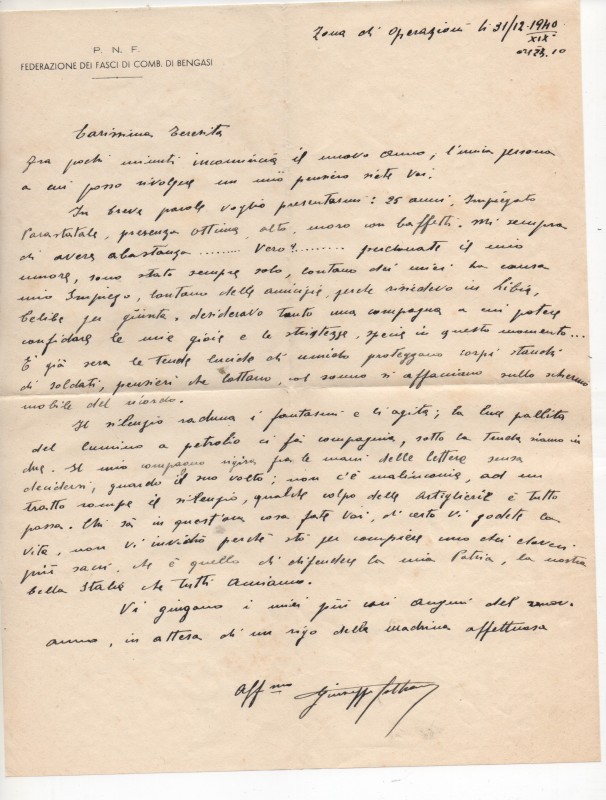 Zona di Operazioni li 31/12.1940
XIX°
P. N. F.
ore 23.10
FEDERAZIONE DEI FASCI DI COMB. DI BENGASI
Carissima Teresita
Fra pochi minuti incomincia il nuovo anno, l'unica persona
a cui posso rivolgere un mio pensiero siete voi.
In breve parole voglio presentarmi: 25 anni, Impiegato
Parastatale, presenza ottima, alto, moro con baffetti. Mi sempra
di avere abastanza ......... Vero?......... perdonate il mio
umore, sono stato sempre solo, lontano dei miei ha causa
mio Impiego, lontano delle amicizie, perche risiedevo in Libia,
Celibe per giunta, desideravo tanto una compagna a cui potere
confidare le mie gioie e le tristezze, specie in questo momento...
E già sera le tende lucide di umido proteggano corpi stanchi
di soldati, pensieri che lottano, si affacciano sullo schermo
mobile del ricordo.
Il silenzio raduna i fantasmi e li agita; la luce pallita
del lumino a petrolio ci fai compagnia, sotto la tenda siamo in
due. Il mio compagno rigira fra le mani delle lettere sensa
decidersi, guardo il suo volto; non c'è malinconia, ad un
tratto rompe il silenzio, qualche colpo delle Artiglierie è tutto
passa. Chi sà in quest'ora cosa fate Voi, di certo Vi godete la
vita, non vi invidio perchè stò per compiere uno dei doveri
più sacri, che è quello di difendere la mia Patria, la nostra
bella Italia che tutti amiamo.
Vi giungano i miei più cari auguri del nuovo
anno, in attesa di un rigo della madrina affettuosa
Aff.mo Giuseppe